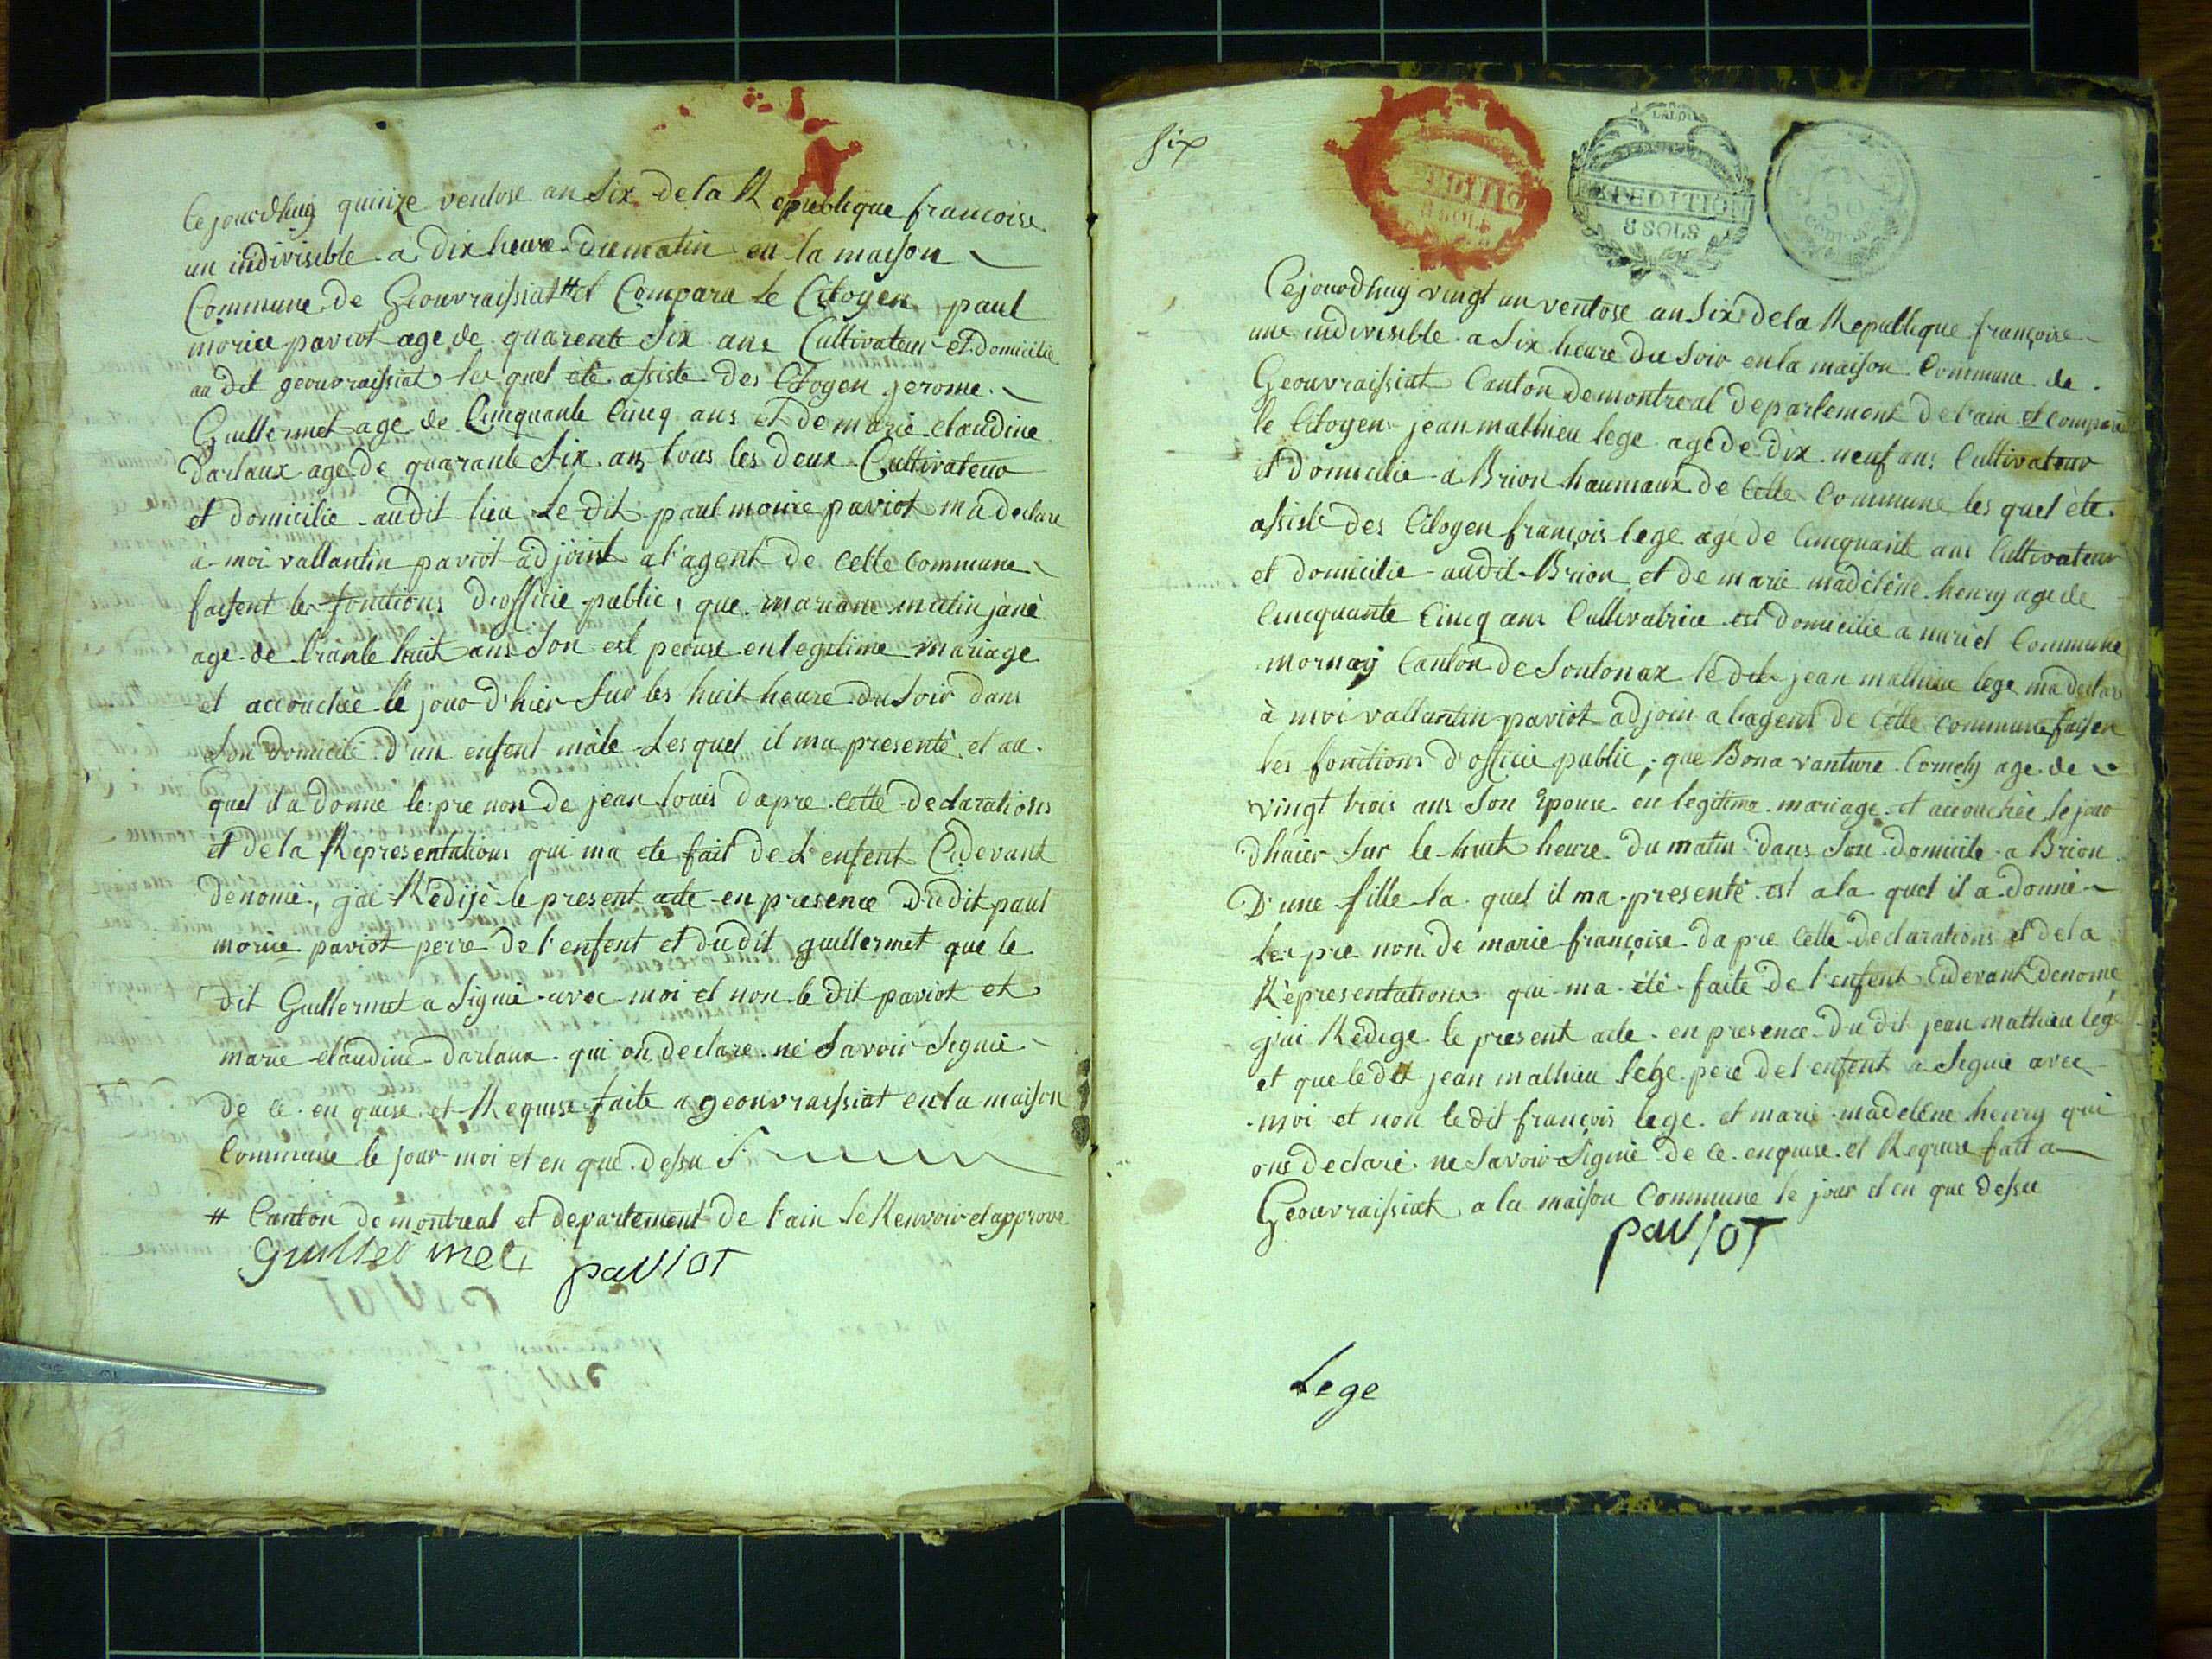 Cejourdhuy quinze ventose an Six de la Republique francoise
un indivisible a dix heure du matin en la maison
Commune de Geouvraissiat # et Compara le Citoyen paul
morice paviot age de quarente Six ans Cultivateur et Domicilie
au dit geouvraissiat les quel ete assiste des Citoyen jerome
Guillermet age de Cinquante Cincq ans et De marie claudine
Darlaux age de quarante Six ans tous les deux Cultivateur
et domicilie audit lieu Le dit paul morice paviot ma declare
a moi vallantin paviot adjoint a l'agent de cette commune
faisent les fonctions d'officie public, que mariane mutin jáné
age de trante huit ans Son est peouse en legitime mariage
et accouchée le jour d'hier Sur les huit heure du Soir dans
Son domicile d'un enfent mâle Lesquel il ma presenté et au
quel il a donne le pre non de jean louis dapre cette declarations
et de la Representations qui ma ete fait de L'enfent Cidevant
denomé, jai Rédijé le present acte en presence Dudit paul
morice paviot perre de l'enfent et dudit guillermet que le
dit Guillermet a Signié avec moi et non le dit paviot et
marie claudine darlaux qui on declare ne Savoir Signié
de ce en quise et Requise faite a geouvraissiat en la maison
Commune le jour moi et en que dessu S.
# Canton de montreal et departement de l'ain le Renvoir et approve
Guillermet paviot
Six
EXPEDITION
8 SOLS
EXPEDITION
8 SOLS
50
Cejourdhuy vingt un ventose an Six de la Republique françoise
une indivisible a Six heure du Soir en la maison Commune de
Geouvraissiat Canton de montreal departement de l'ain et compara
le Citoyen jean mathieu lege age de dix neuf ans Cultivateur
et Domicilie a Brion haumaux de Cette Commune les quel éte
assisté des Citoyen françois lege age de Cincquante ans Cultivateur
et domicilie audit Brion et de marie madéléne henry age de
Cincquante Cincq ans Cultivatrice est domicilie a Commune
mornay Canton de Sontonax le dit jean mathieu lege ma declare
à moi vallantin paviot adjoin a l'agent de Cette commune faisen
les fonctions d'officie public, que Bona vanture age de
vingt trois ans Son Epouse en legitime mariage et accouchée le jour
dhaier Sur le huit heure du matin dans Son domicile a Brion
D'une fille la quel il ma presenté est a la quel il a donné
les pre non de marie françoise dapre cette declarations et de la
Répresentations qui ma été faite de l'enfent Cidevant denomé
jai Rédege le present acte en presence du dit jean mathieu lége
et que le dit jean mathieu lege peré de l enfent a Signié avec
moi et non le dit françois lege et marie madeléne henry qui
ons declaré ne Savoir Signié De ce enquise et Requise fait a
Geouvraissiat a la maison Commune le jour et en que dessu
paviot
Lege